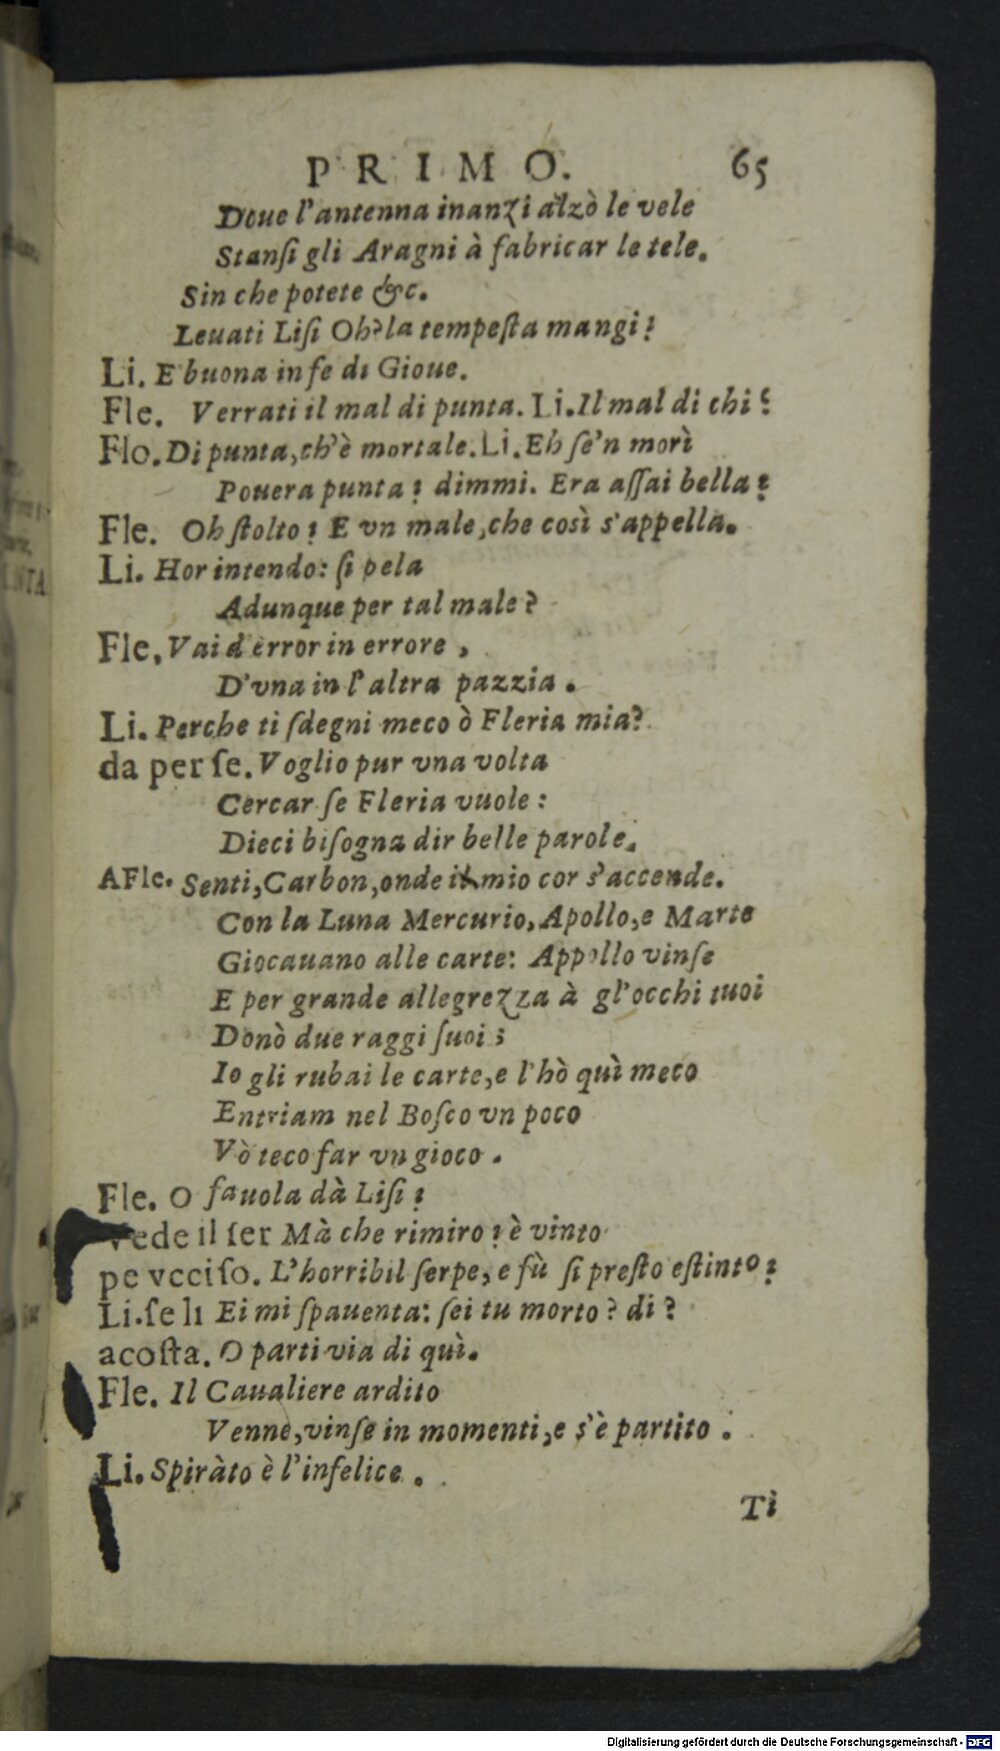 PRIMO. 65
Doue l'antenna inanzi alzò le vele
Stansi gli Aragni à fabricar le tele.
Sin che potete &c.
Leuati Lisi Oh? la tempesta mangi!
Li. E buona in fe di Gioue.
Fle. Verrati il mal di punta. Li. Il mal di chi?
Flo. Di punta, ch'è mortale. Li. Eh se'n morì
Pouera punta! dimmi. Era assai bella?
Fle. Oh stolto! E vn male, che così s'appella.
Li. Hor intendo: si pela
Adunque per tal male?
Fle, Vai d error in errore,
D'vna in l'altra pazzia.
Li. Perche ti sdegni meco ò Fleria mia?
da per se. Voglio pur vna volta
Cercar se Fleria vuole:
Dieci bisogna dir belle parole.
A Fle. Senti, Carbon, onde il mio cor s'accende.
Con la Luna Mercurio, Apollo, e Marte
Giocauano alle carte: Appollo vinse
E per grande allegrezza à gl'occhi tuoi
Donò due raggi suoi;
Io gli rubai le carte, e l'hò quì meco
Entriam nel Bosco vn poco
Vò teco far vn gioco.
Fle. O fauola dà Lisi!
Vede il ser Mà che rimiro! è vinto
pe vcciso. L'horribil serpe, e fù si presto estinto?
Li. se li Ei mi spauenta: sei tu morto? di?
acosta. O parti via di quì.
Fle. Il Caualiere ardito
Venne, vinse in momenti, e s'è partito.
Li. Spiràto è l'infelice.
Tì
Digitalisierung gefördert durch die Deutsche Forschungsgemeinschaft - DFG